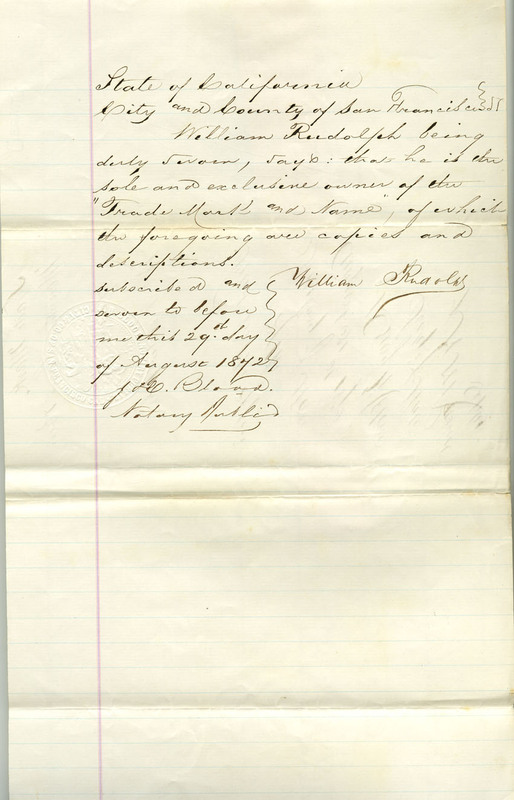 State of California
City and County of San Francisco } SS
William Rudolph being
duly sworn, says: that he is the
sole and exclusive owner of the
"Trade Mark and Name", of which
the foregoing are copies and
descriptions.
subscribed and William Rudolph
sworn to before
me this 29th day
of August 1872
Notary Public